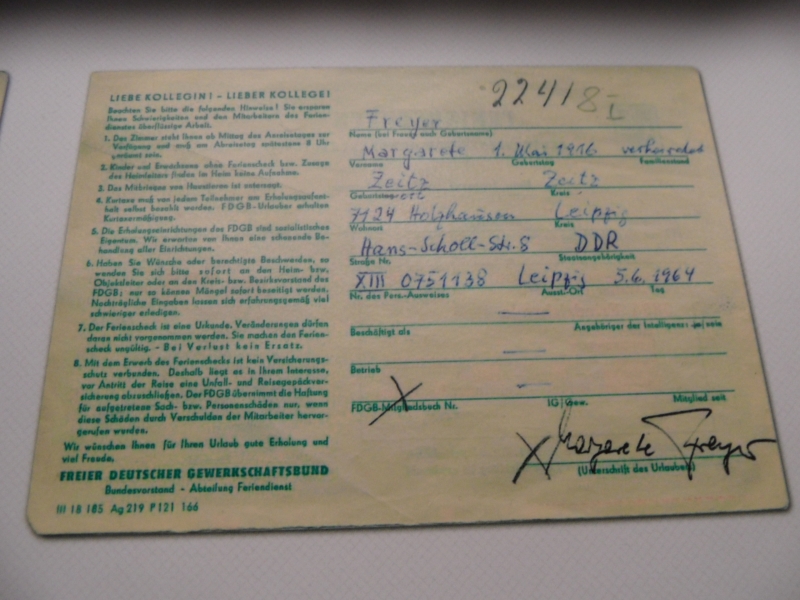 LIEBE KOLLEGIN! - LIEBER KOLLEGE!
Beachten Sie bitte die folgenden Hinweise! Sie ersparen
Ihnen Schwierigkeiten und den Mitarbeitern des Ferien-
dienstes überflüssige Arbeit.
1. Das Zimmer steht Ihnen ab Mittag des Anreisetages zur
Verfügung und muß am Abreisetag spätestens 8 Uhr
geräumt sein.
2. Kinder und Erwachsene ohne Ferienscheck bzw. Zusage
des Heimleiters finden im Heim keine Aufnahme.
3. Das Mitbringen von Haustieren ist untersagt.
4. Kurtaxe muß von jedem Teilnehmer am Erholungsaufent-
halt selbst bezahlt werden. FDGB-Urlauber erhalten
Kurtaxermäßigung.
5. Die Erholungseinrichtungen des FDGB sind sozialistisches
Eigentum. Wir erwarten von Ihnen eine schonende Be-
handlung aller Einrichtungen.
6. Haben Sie Wünsche oder berechtigte Beschwerden, so
wenden Sie sich bitte sofort an den Heim- bzw.
Objektleiter oder an den Kreis- bzw. Bezirksvorstand des
FDGB; nur so können Mängel sofort beseitigt werden.
Nachträgliche Eingaben lassen sich erfahrungsgemäß viel
schwieriger erledigen.
7. Der Ferienscheck ist eine Urkunde. Veränderungen dürfen
daran nicht vorgenommen werden. Sie machen den Ferien-
scheck ungültig. - Bei Verlust kein Ersatz.
8. Mit dem Erwerb des Ferienschecks ist kein Versicherungs-
schutz verbunden. Deshalb liegt es in Ihrem Interesse,
vor Antritt der Reise eine Unfall- und Reisegepäckver-
sicherung abzuschließen. Der FDGB übernimmt die Haftung
für aufgetretene Sach- bzw. Personenschäden nur, wenn
diese Schäden durch Verschulden der Mitarbeiter hervor-
gerufen werden.
Wir wünschen Ihnen für Ihren Urlaub gute Erholung und
viel Freude.
FREIER DEUTSCHER GEWERKSCHAFTSBUND
Bundesvorstand - Abteilung Feriendienst
III 18 185 Ag 219 P 121 166
2241/8
Freyer
Name (bei Frauen auch Geburtsname)
Margarete 1. Mai 1916 verheiratet
Vorname Geburtstag Familienstand
Zeitz Zeitz
Geburtsort Kreis
7124 Holzhausen Leipzig
Wohnort Kreis
Hans-Scholl-Str. 8 DDR
Straße Nr. Staatsangehörigkeit
XIII 0751138 Leipzig 5.6.1964
Nr. des Pers.-Ausweises Ausst.-Ort Tag
Beschäftigt als Angehöriger der Intelligenz: ja/nein
Betrieb
FDGB-Mitgliedsbuch Nr. IG/Gew. Mitglied seit
Margarete Freyer
(Unterschrift des Urlaubers)